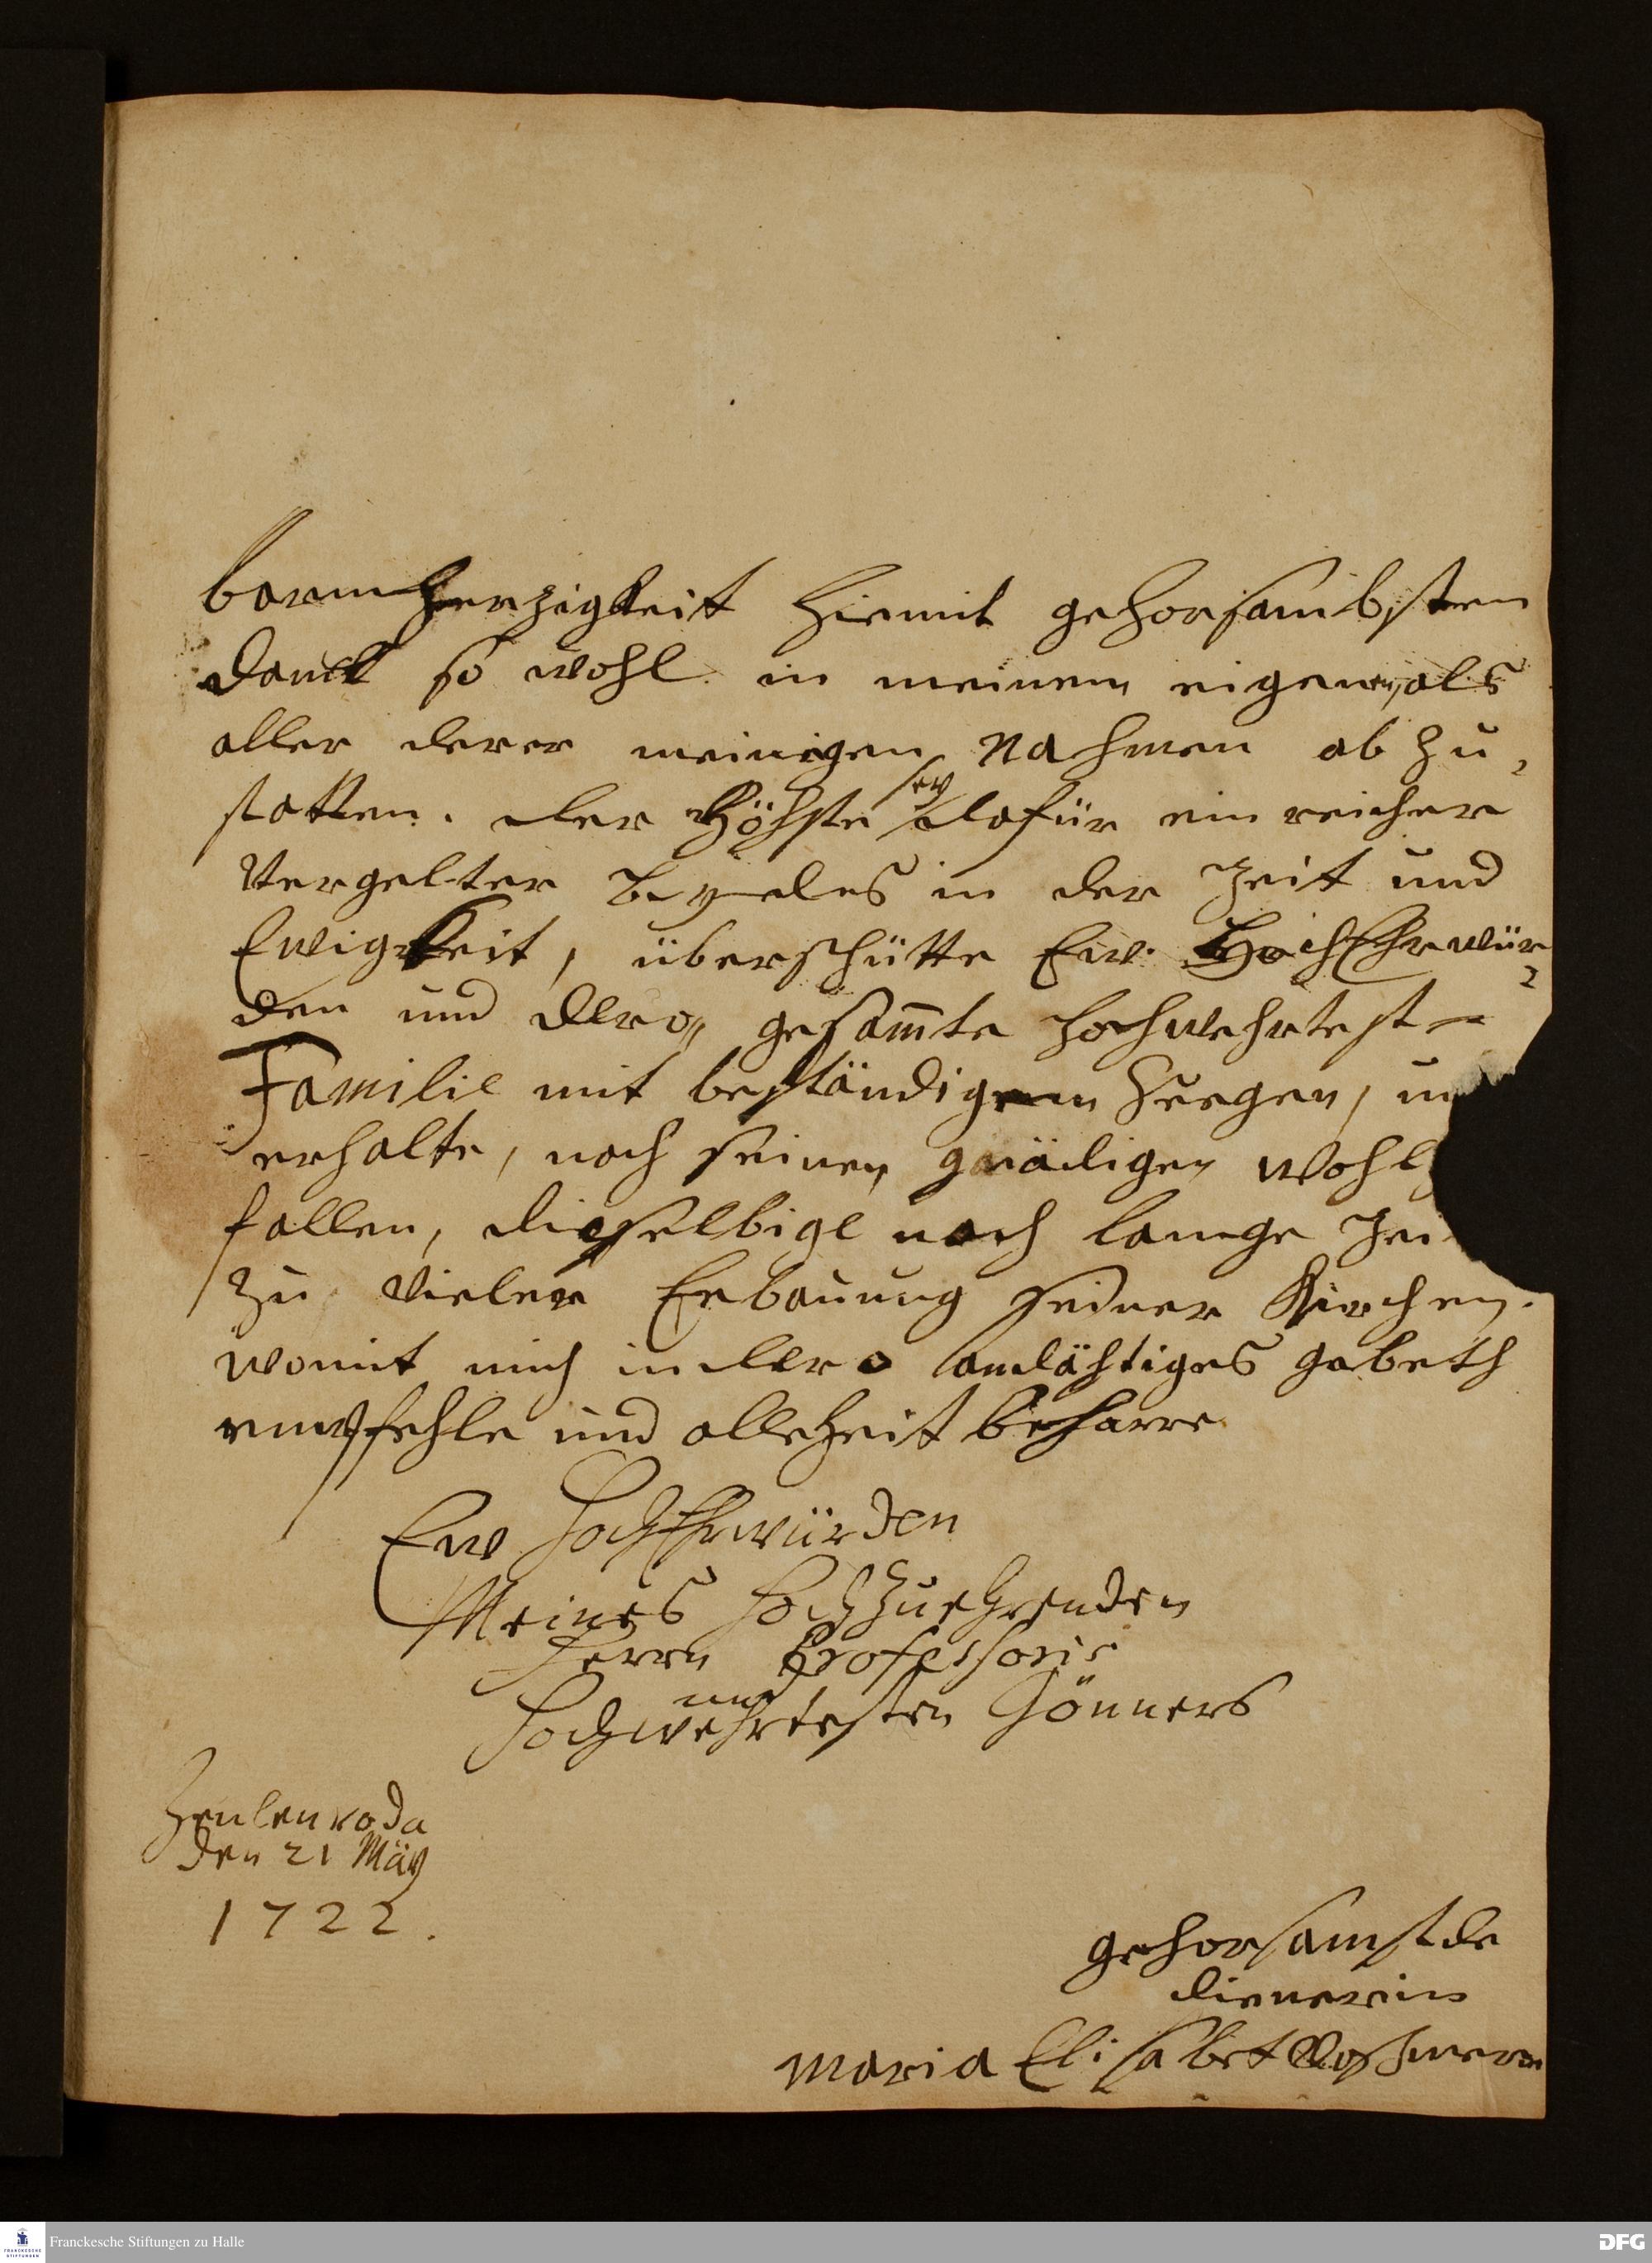 barmherzigkeit hiemit gehorsambsten
danck so wohl in meinem eigenen, als
aller derer meinigen Nahmen ab zu,
statten. der Höhste sey dafür ein reicher
Vergelter beydes in der Zeit und
Ewigkeit, überschütte Ew. HochEhrwür,
den und dero gesam̅te hochwehrtest
Familie mit beständigem Seegen, un
erhalte, nach seinen gnädigen wohlg
fallen, dieselbige noch lange Zei
zu vieler Erbauung seiner Kirchen.
womit mich in dero andähtiges gebeth
empfehle und allezeit beharre
Ew HochEhrwürden
Meines Hochzuehrenden
Herrn Professoris
und
Hochwehrtesten Gönners
Zeulenroda
den 21 Mäy
1722.
gehorsamstde
dienerin
Maria Elisabet
Franckesche Stiftungen zu Halle
DFG